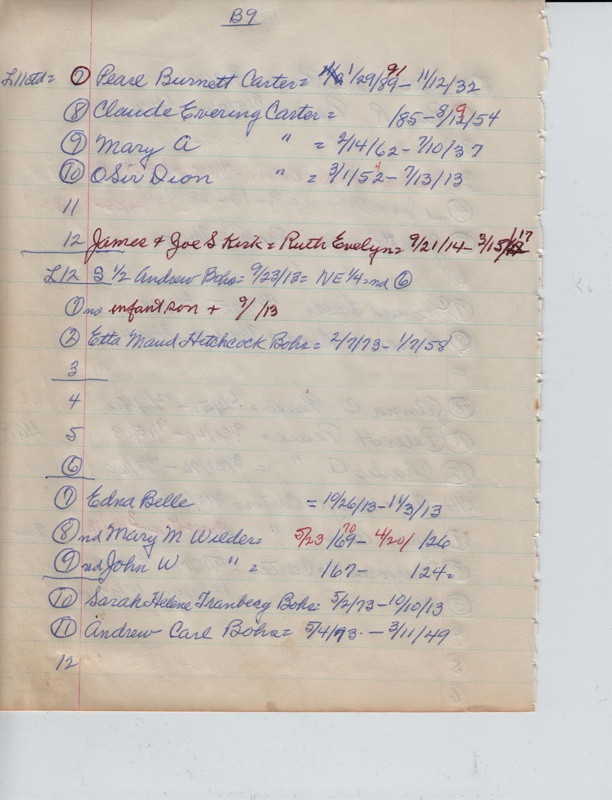 B9
L11 ctd = ⑦ Pearl Burnett Carter = 1/29/89 91 - 11/12/32
⑧ Claude Evering Carter = /85 - 8/12/54 9
⑨ Mary A " = 2/14/62 - 7/10/37
⑩ OSir Dion " = 3/1/52 4 - 7/13/13
11
12 James & Joe S Kirk = Ruth Evelyn = 9/21/14 - 3/15/ 17
L12 S 1/2 Andrew Bohs = 9/23/13 = NE 1/4 = nd ⑥
① no infant son + 9/ /13
② Etta Maud Hitchcock Bohs = 2/7/73 - 1/7/58
3
4
5
⑥
⑦ Edna Belle = 10/26/13 - 11/3/13
⑧ nd Mary M Wilder = 5/23/69 70 - 4/20/ /26
⑨ nd John W " = /67 - /24 =
⑩ Sarah Helene Tranberg Bohs = 5/2/73 - 10/10/13
⑪ Andrew Carl Bohs = 5/4/73 - 3/11/49
12